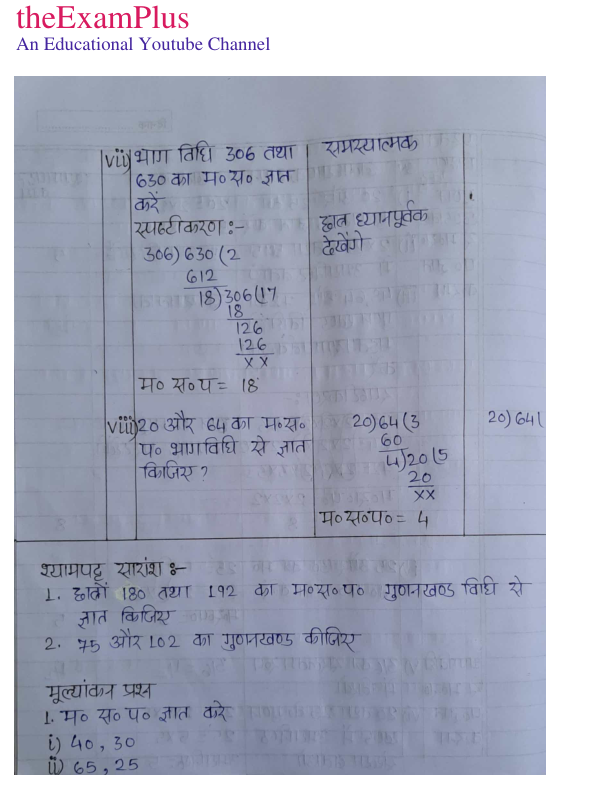 theExamPlus
An Educational Youtube Channel
vii) भाग विधि 306 तथा
630 का म० स० ज्ञात
करें
स्पष्टीकरण :-
306) 630 ( 2
612
18) 306 ( 17
18
126
126
x x
म० स० प = 18
समस्यात्मक
छात्र ध्यानपूर्वक
देखेंगे
viii) 20 और 64 का म० स०
प० भाग विधि से ज्ञात
किजिए ?
20) 64 ( 3
60
4) 20 ( 5
20
x x
म० स० प० = 4
20) 64 (
श्यामपट्ट सारांश :-
1. छात्रों 180 तथा 192 का म० स० प० गुणनखण्ड विधि से
ज्ञात किजिए
2. 75 और 102 का गुणनखण्ड कीजिए
मूल्यांकन प्रश्न
1. म० स० प० ज्ञात करे
i) 40, 30
ii) 65, 25